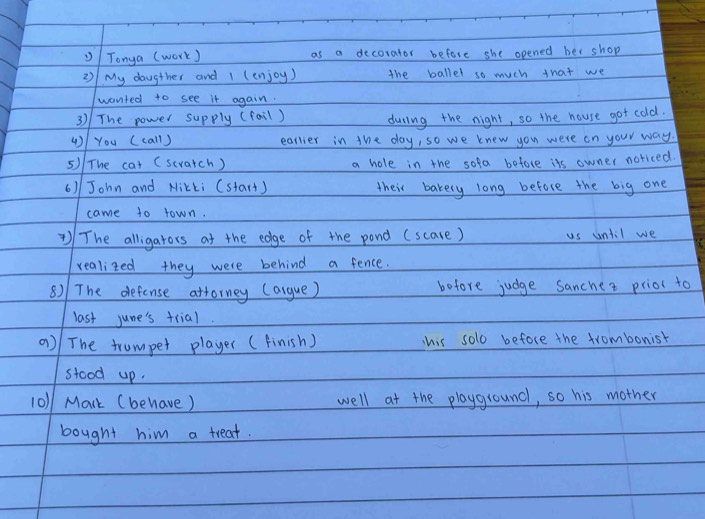 1) Tonya (work) as a decorator before she opened her shop
2) My dougther and I (enjoy) the ballet so much that we
wanted to see it again.
3) The power supply (fail) during the night, so the house got cold.
4) You (call) earlier in the day, so we knew you were on your way.
5) The cat (scratch) a hole in the sofa before its owner noticed.
6) John and Nikki (start) their bakery long before the big one
came to town.
7) The alligators at the edge of the pond (scare) us until we
realized they were behind a fence.
8) The defense attorney (argue) before judge Sanchez prior to
last june's trial.
9) The trumpet player (finish) his solo before the trombonist
stood up.
10) Mark (behave) well at the playground, so his mother
bought him a treat.